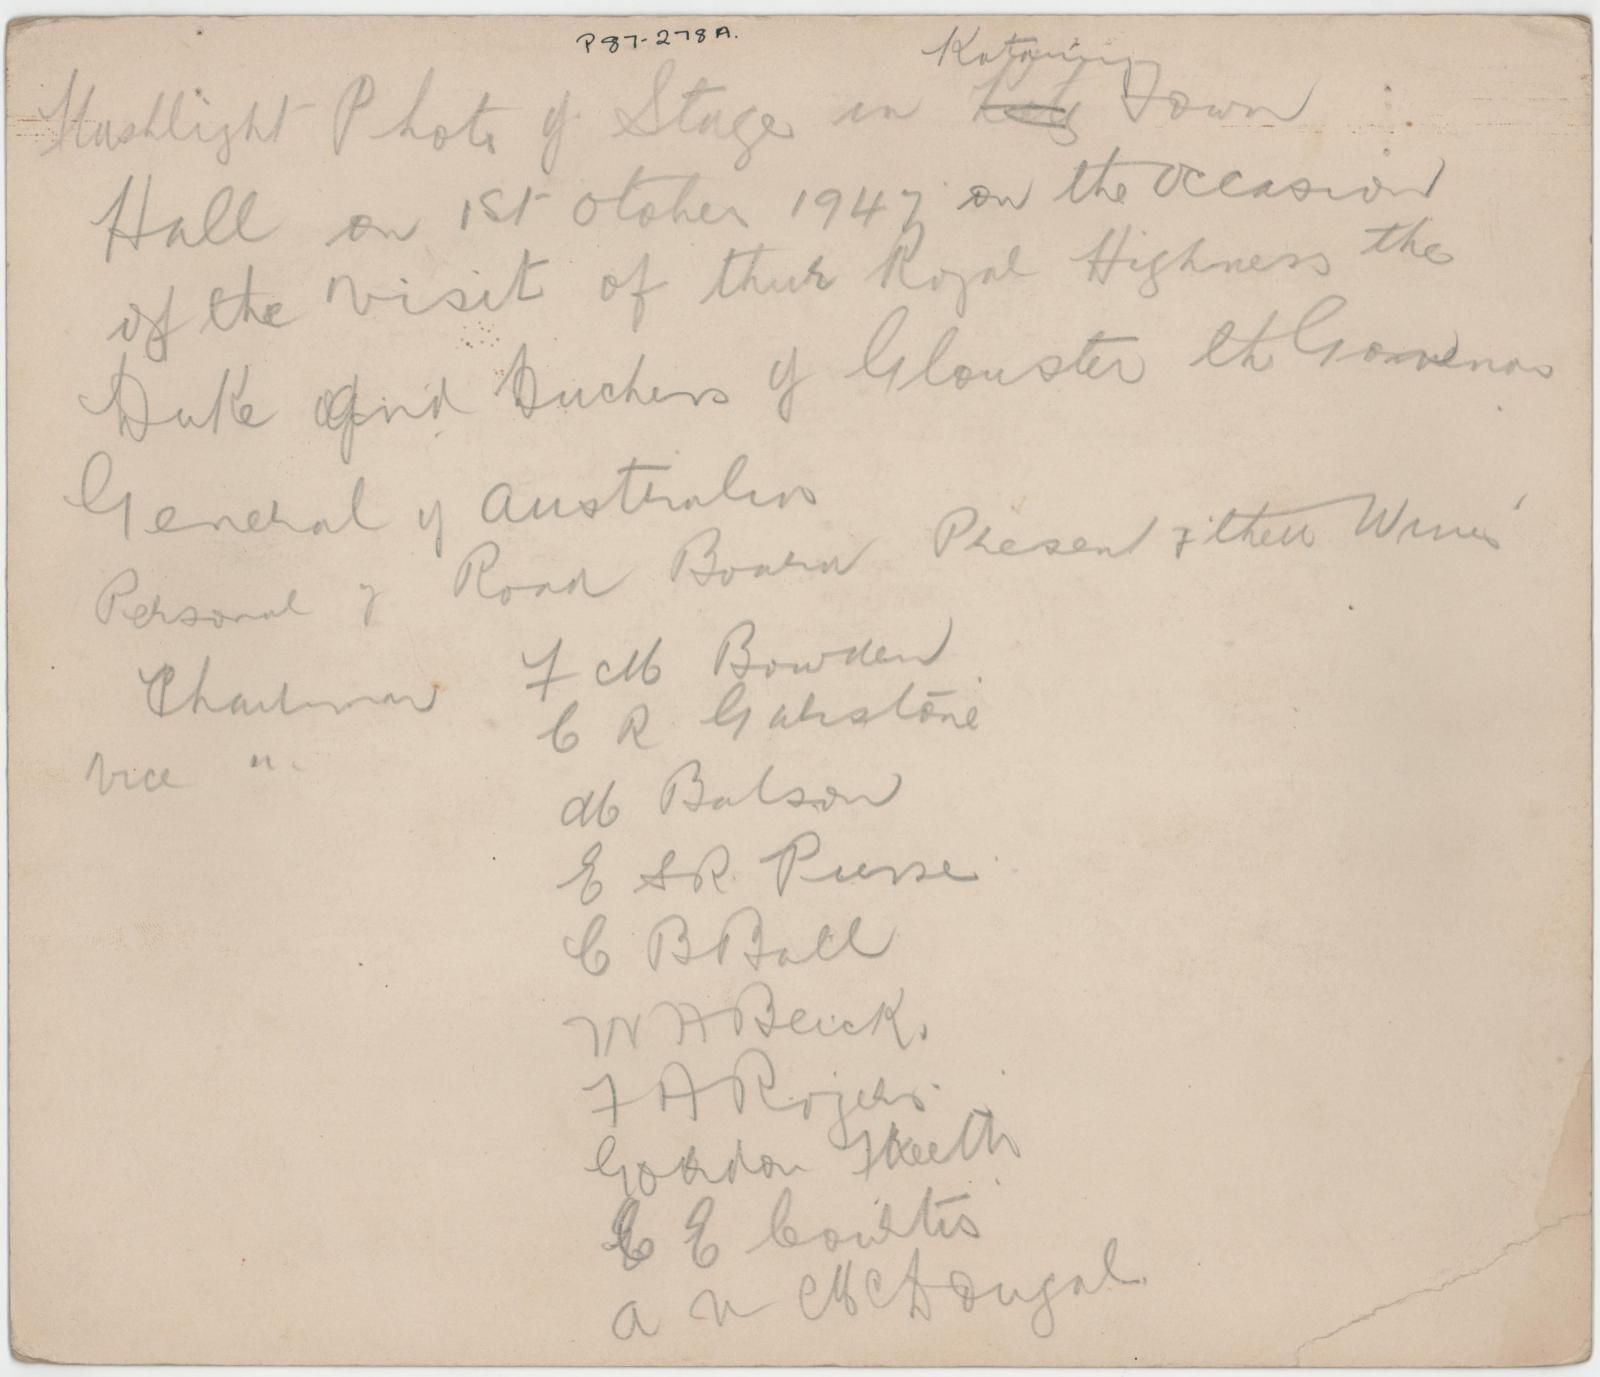 P87-278A.
Katanning
Flashlight Photo of Stage in Town
Hall on 1st Otober 1947 on the Occasion
of the Visit of their Royal Highness the
Duke and Duchess of Glouster th Govenor
General of Australia
Personal of Road Board Present & their Wives'
Chairman F M Bowden
C R Garstone
Vice "
M Batson
E S R Purse
C B Ball
W A Beeck.
F A Rogers
Gordon Keith
C E Courtis
A N McDougal.